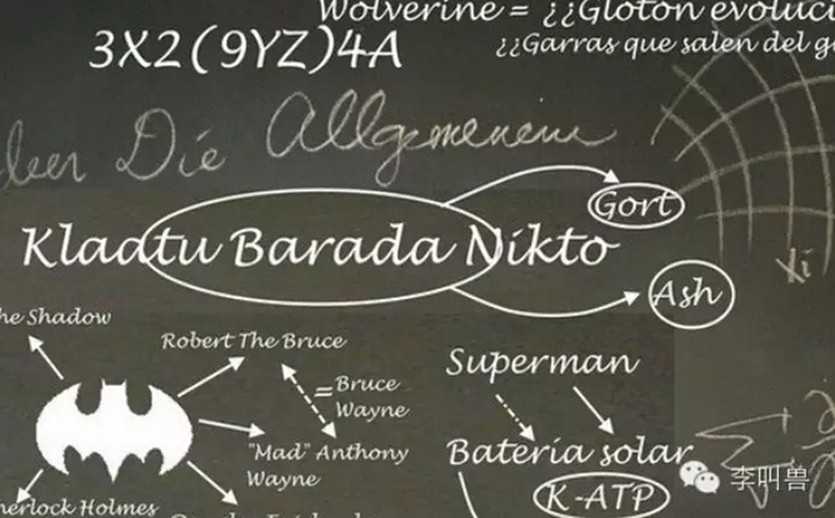 Wolverine = ¿¿Glotón evoluci
3X2(9YZ)4A
¿¿Garras que salen del g
Die Allgemenein
Gort
Klaatu Barada Nikto
Xi
Ash
he Shadow
Robert The Bruce
= Bruce
Wayne
Superman
"Mad" Anthony
Wayne
Batería solar
herlock Holmes
K-ATP
李叫兽